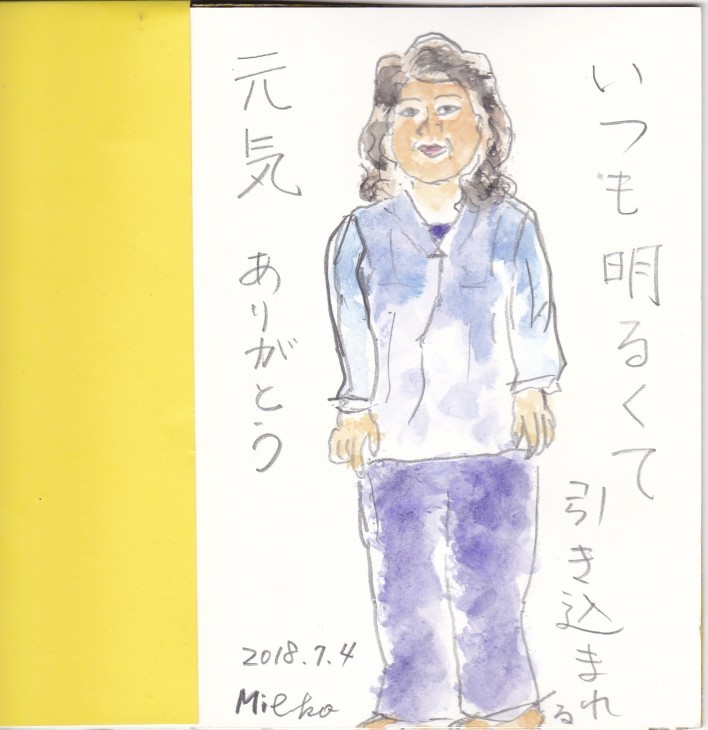 いつも明るくて
引き込まれる
元気 ありがとう
2018.7.4
Mieko